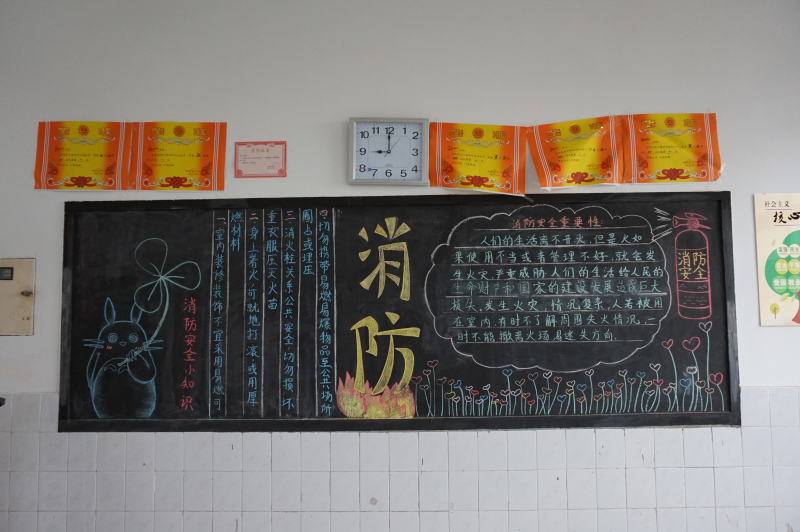 12
11
1
10
2
9
3
8
4
7
5
6
消防安全小知识
一、室内装修装饰不宜采用易燃可
燃材料
二、身上着火,可就地打滚,或用厚
重衣服压灭火苗
三、消火栓关系公共安全,切勿损坏、
圈占或埋压
四、切勿携带易燃易爆物品至公共场所
消防
消防安全重要性
人们的生活离不开火,但是火如
果使用不当或者管理不好,就会发
生火灾,严重威胁人们的生活给人民的
生命财产和国家的建设发展造成巨大
损失,发生火灾,情况复杂,人若被困
在室内,有时不了解周围失火情况,一
时不能撤离火场易迷失方向.
消防
安全
社会主义
核心